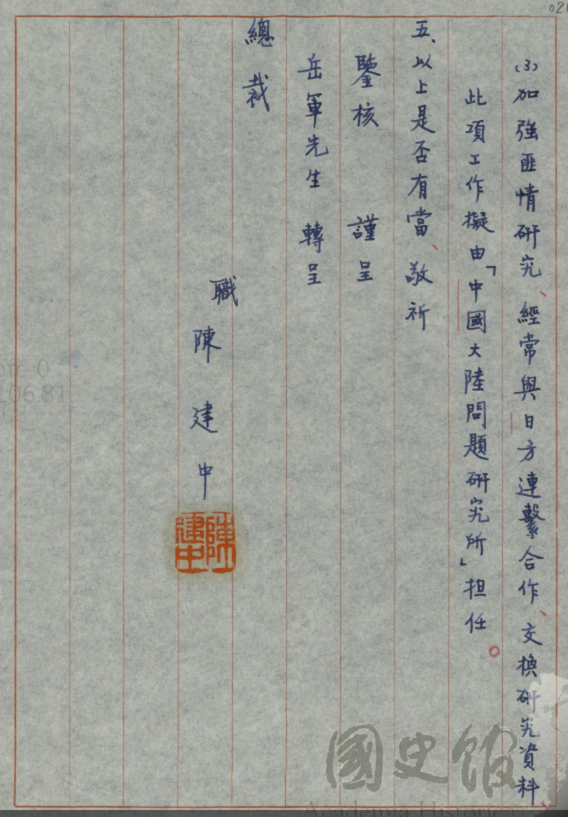 (3)加強匪情研究、經常與日方連繫合作、交換研究資料、
此項工作擬由「中國大陸問題研究所」担任。
五、以上是否有當、敬祈
鑒核 謹呈
岳軍先生 轉呈
總裁
職
陳建中
陳建中
國史館
Academia Historica
106.81